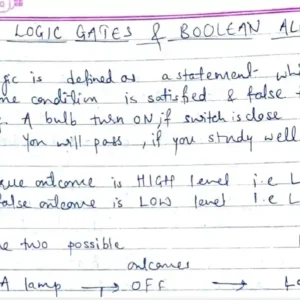 LOGIC GATES & BOOLEAN AL
gic is defined as a statement whi
me condition is satisfied & false
A bulb turn ON, if switch is close
You will pass, if you study well
rue outcome is HIGH level i.e L
false outcome is LOW level i.e L
e two possible
outcomes
A lamp → OFF → Lo